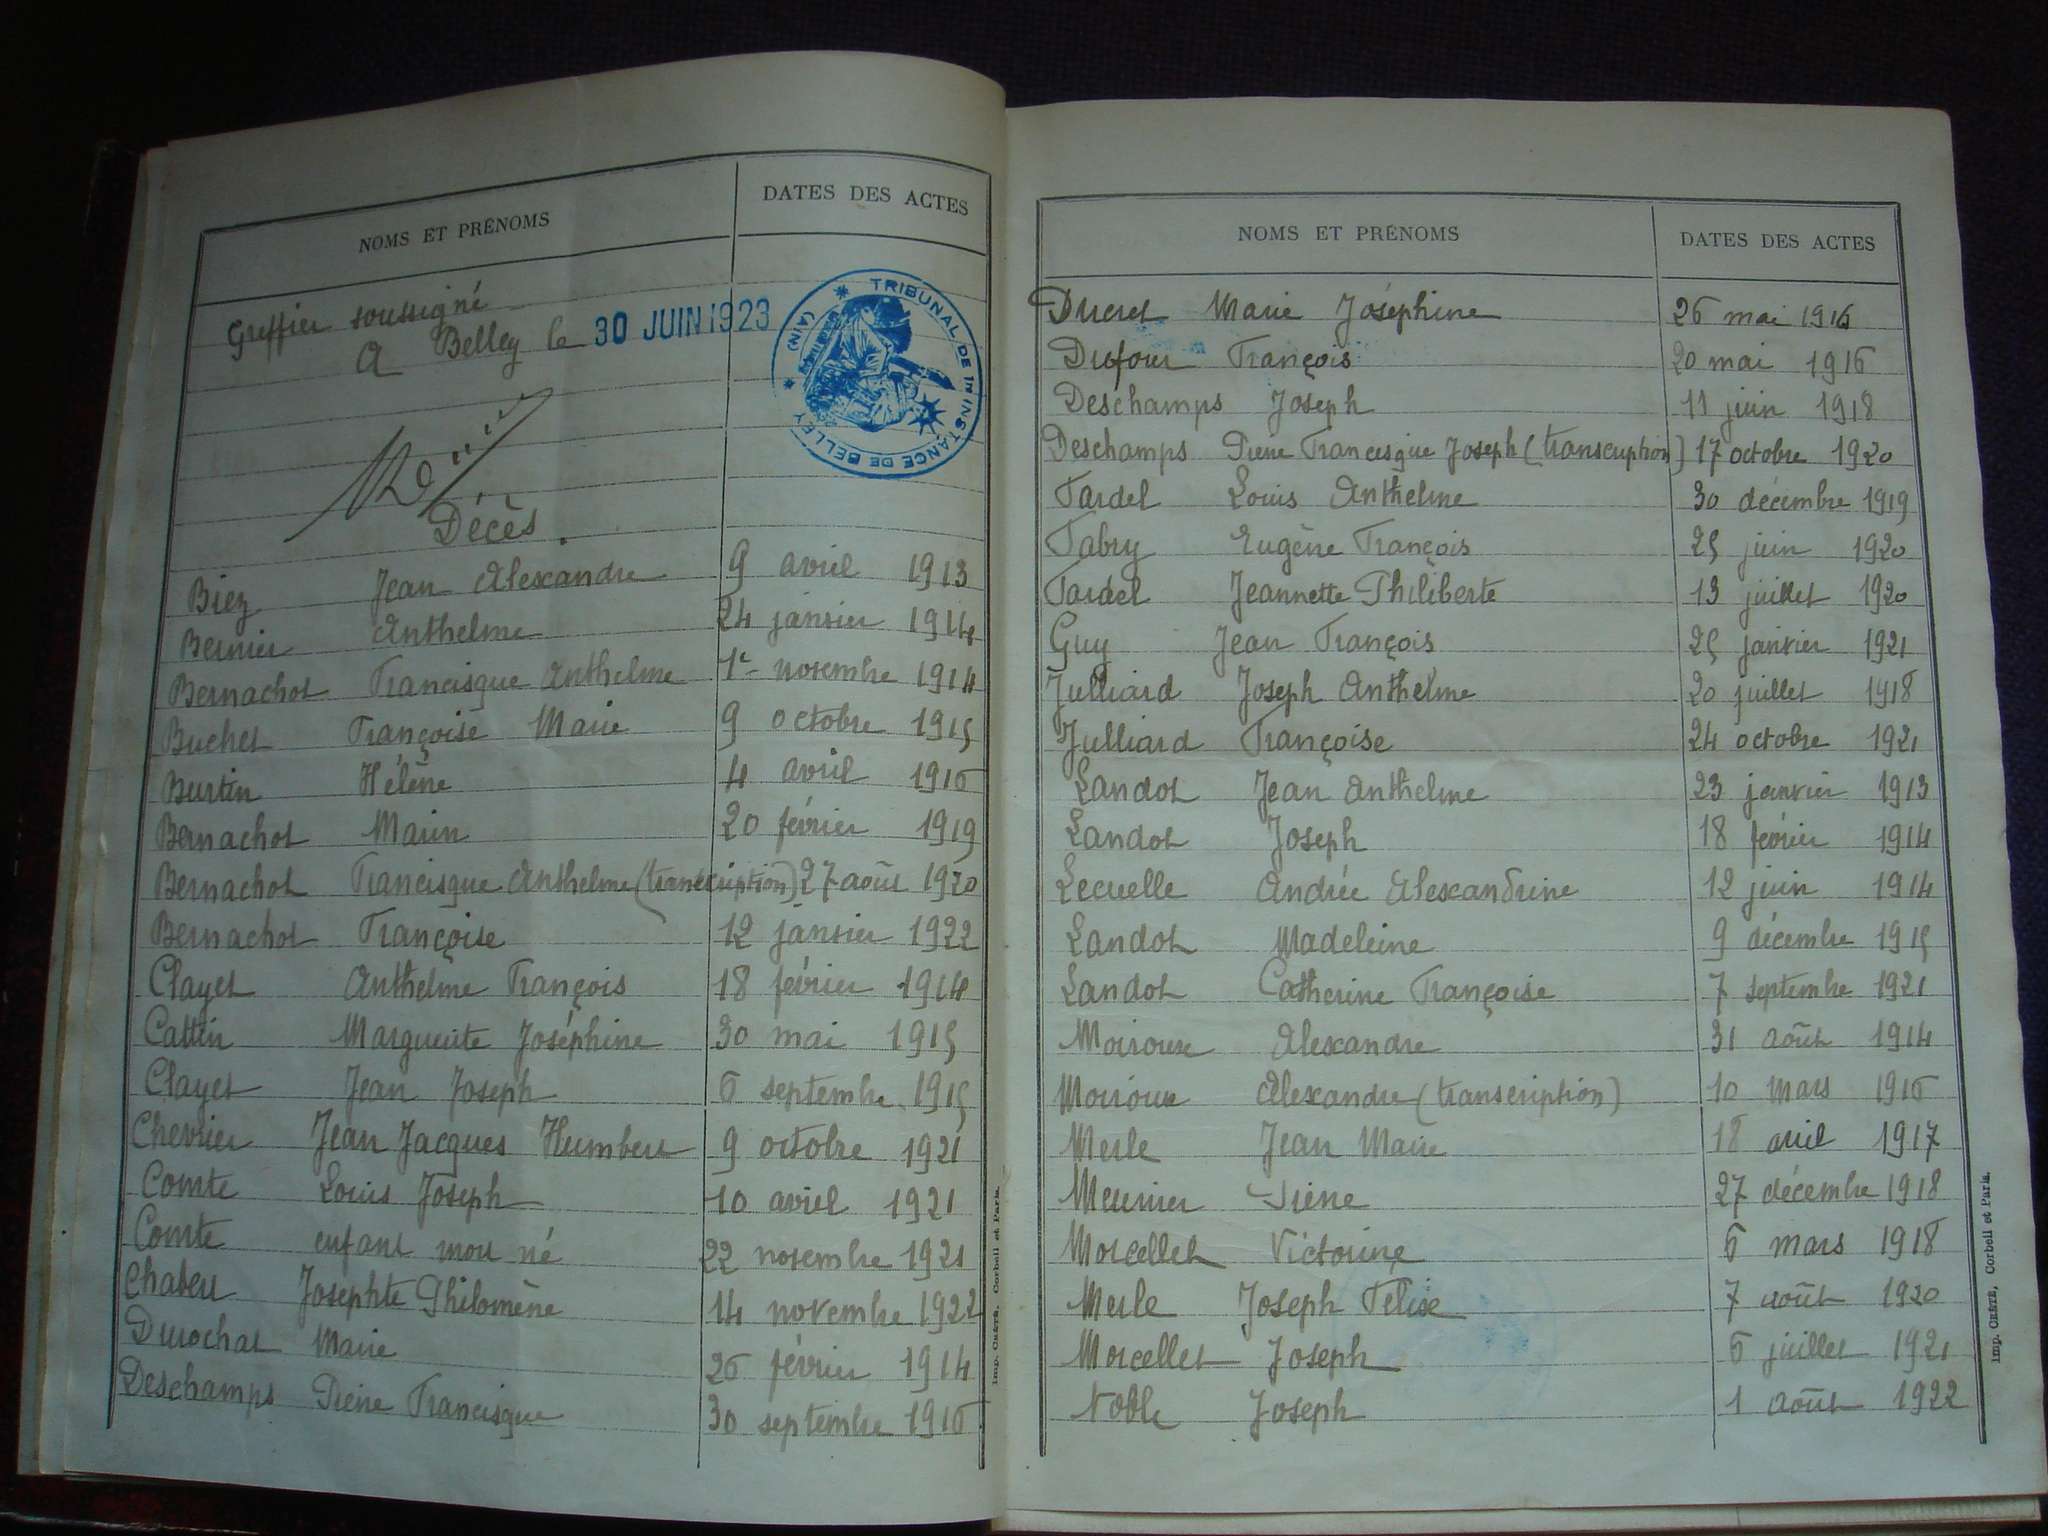 NOMS ET PRÉNOMS DATES DES ACTES
Greffier soussigné
A Belley le 30 JUIN 1923
TRIBUNAL DE 1re INSTANCE DE BELLEY (AIN)
Décès.
Biez Jean Alexandre 9 avril 1913
Bernier Anthelme 24 janvier 1914
Bernachot Francisque Anthelme 1er novembre 1914
Buchet Françoise Marie 9 octobre 1915
Burtin Hélène 4 avril 1916
Bernachot Marin 20 février 1919
Bernachot Francisque Anthelme (transcription) 27 août 1920
Bernachot Françoise 12 janvier 1922
Clayet Anthelme François 18 février 1914
Cattin Marguerite Joséphine 30 mai 1915
Clayet Jean Joseph 6 septembre 1915
Chevrier Jean Jacques Humbert 9 octobre 1921
Comte Louis Joseph 10 avril 1921
Comte enfant mort né 22 novembre 1921
Chabert Josephte Philomène 14 novembre 1922
Durochat Marie 26 février 1914
Deschamps Pierre Francisque 30 septembre 1916
Imp. CRÉTÉ, Corbeil et Paris.
NOMS ET PRÉNOMS DATES DES ACTES
Ducret Marie Joséphine 26 mai 1916
Dufour François 20 mai 1916
Deschamps Joseph 11 juin 1918
Deschamps Pierre Francisque Joseph (transcription) 17 octobre 1920
Fardel Louis Anthelme 30 décembre 1919
Fabry Eugène François 25 juin 1920
Fardel Jeannette Philiberte 13 juillet 1920
Guy Jean François 25 janvier 1921
Julliard Joseph Anthelme 20 juillet 1918
Julliard Françoise 24 octobre 1921
Landot Jean Anthelme 23 janvier 1913
Landot Joseph 18 février 1914
Lecuelle Andrée Alexandrine 12 juin 1914
Landot Madeleine 9 décembre 1915
Landot Catherine Françoise 7 septembre 1921
Moiroux Alexandre 31 août 1914
Moiroux Alexandre (transcription) 10 mars 1916
Merle Jean Marie 18 avril 1917
Meunier Pierre 27 décembre 1918
Morcellet Victorine 6 mars 1918
Merle Joseph Félix 7 août 1920
Morcellet Joseph 6 juillet 1921
Noble Joseph 1 août 1922
Imp. CRÉTÉ, Corbeil et Paris.